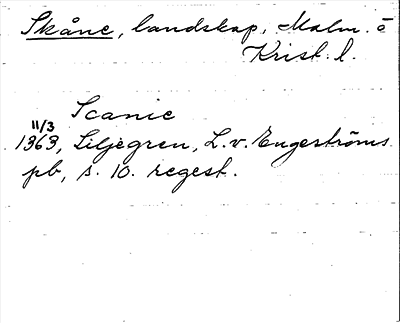 Skåne, landskap, Malm. o
Krist. l.
Scanie
11/3
1363, Liljegren, L. v. Engeströms
pb, s. 10. regest.